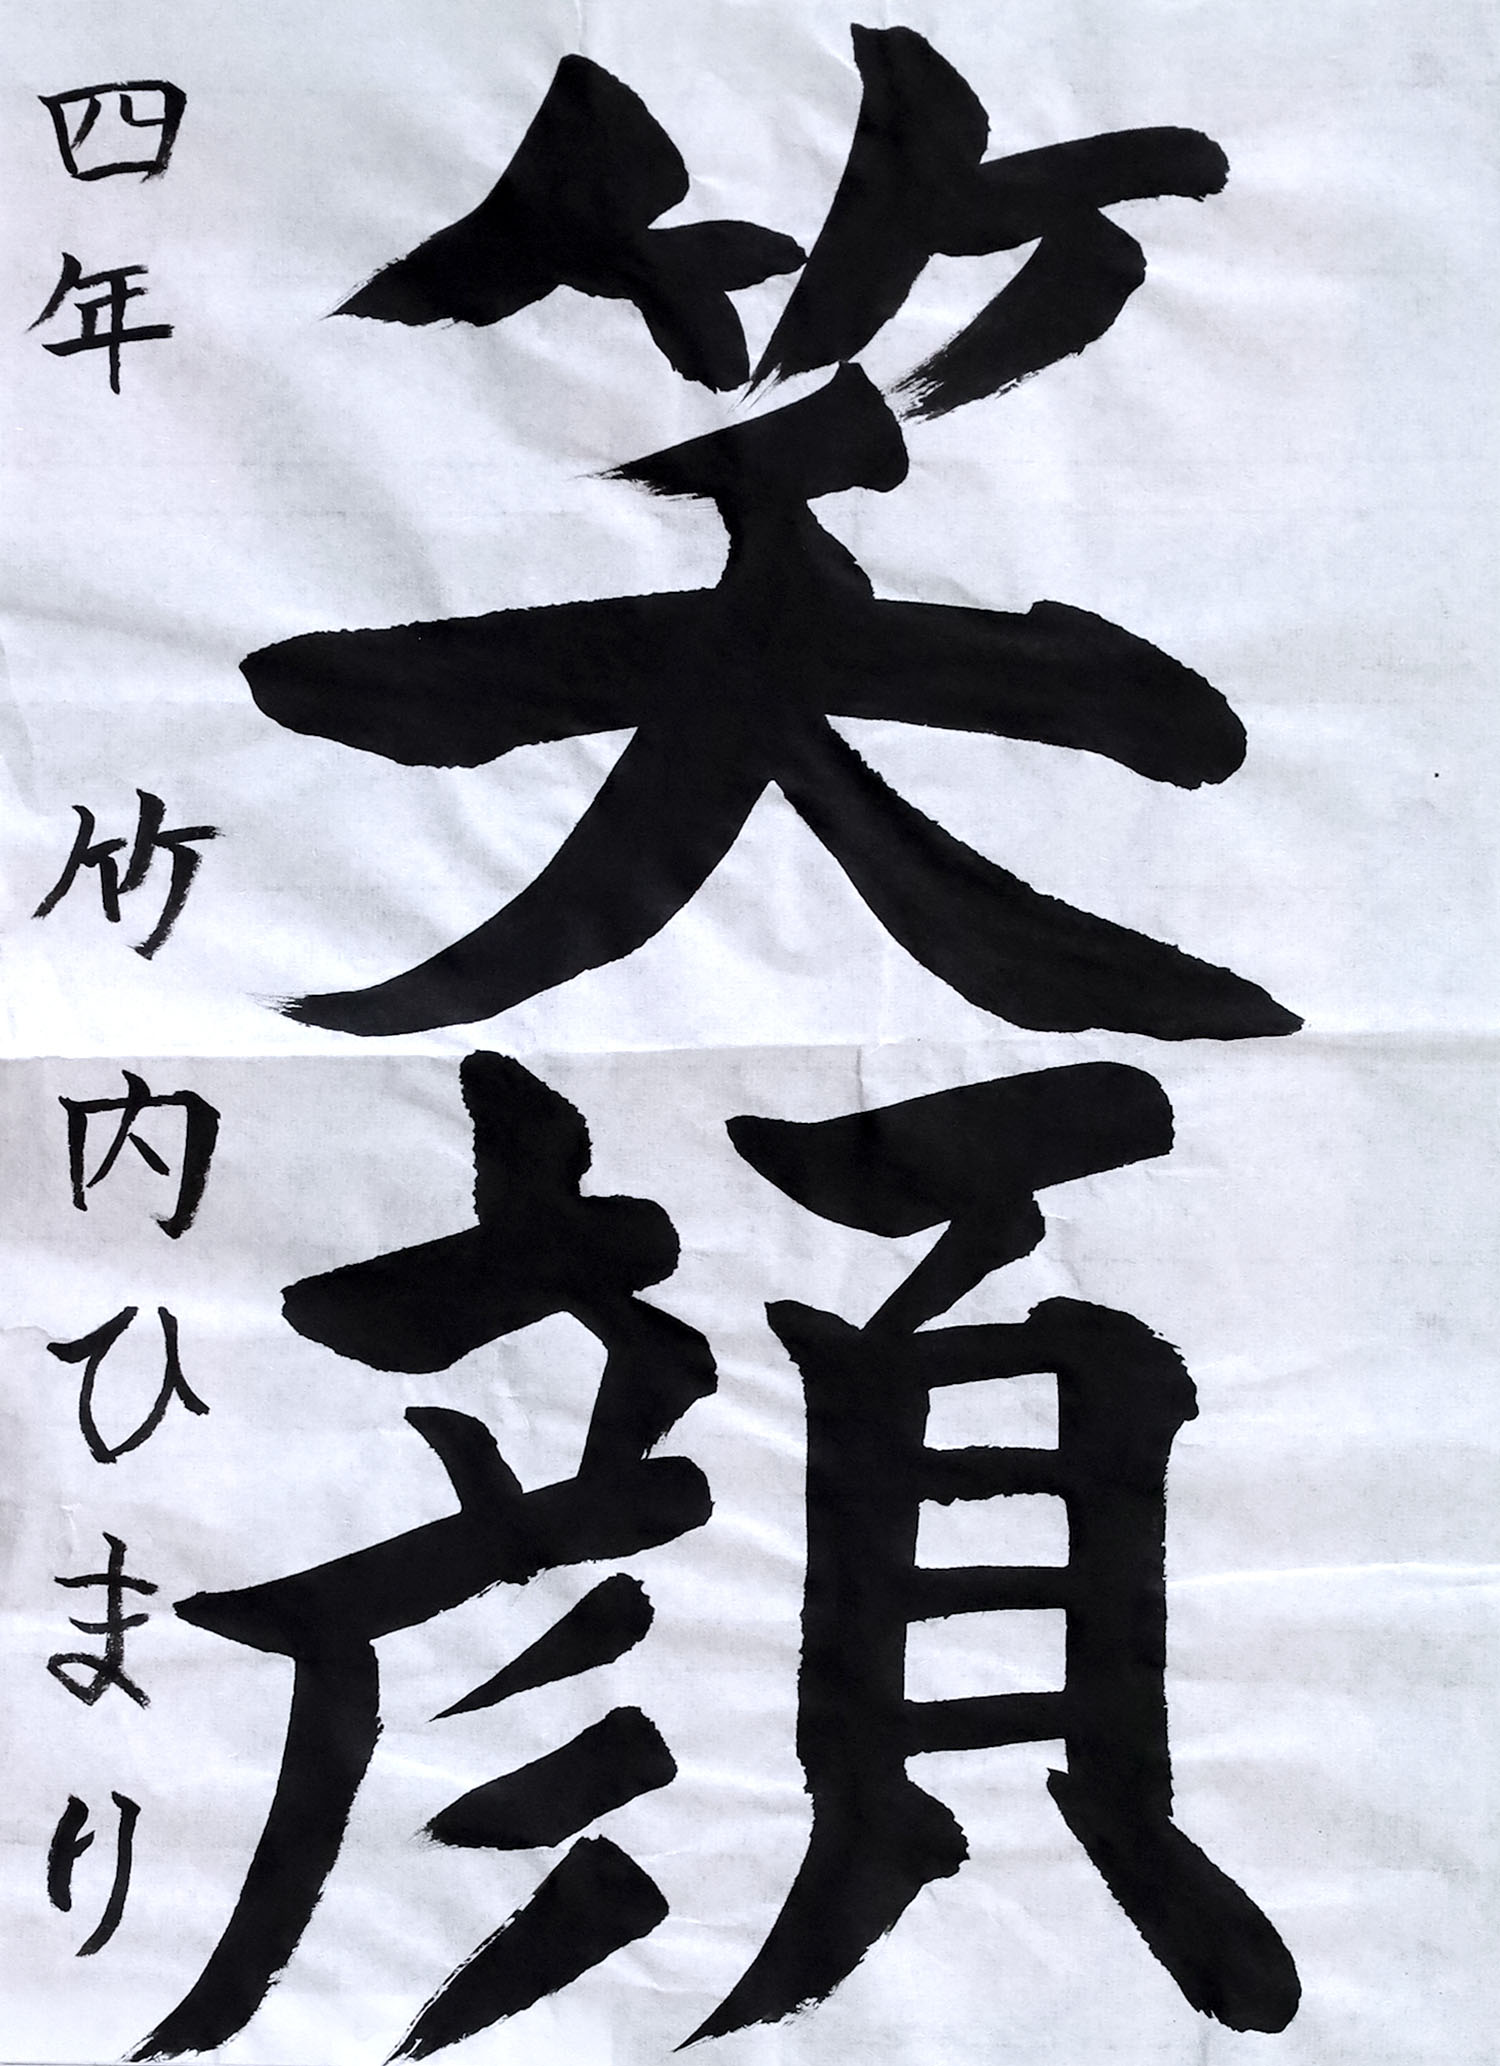 笑顔
四年 竹内ひまり